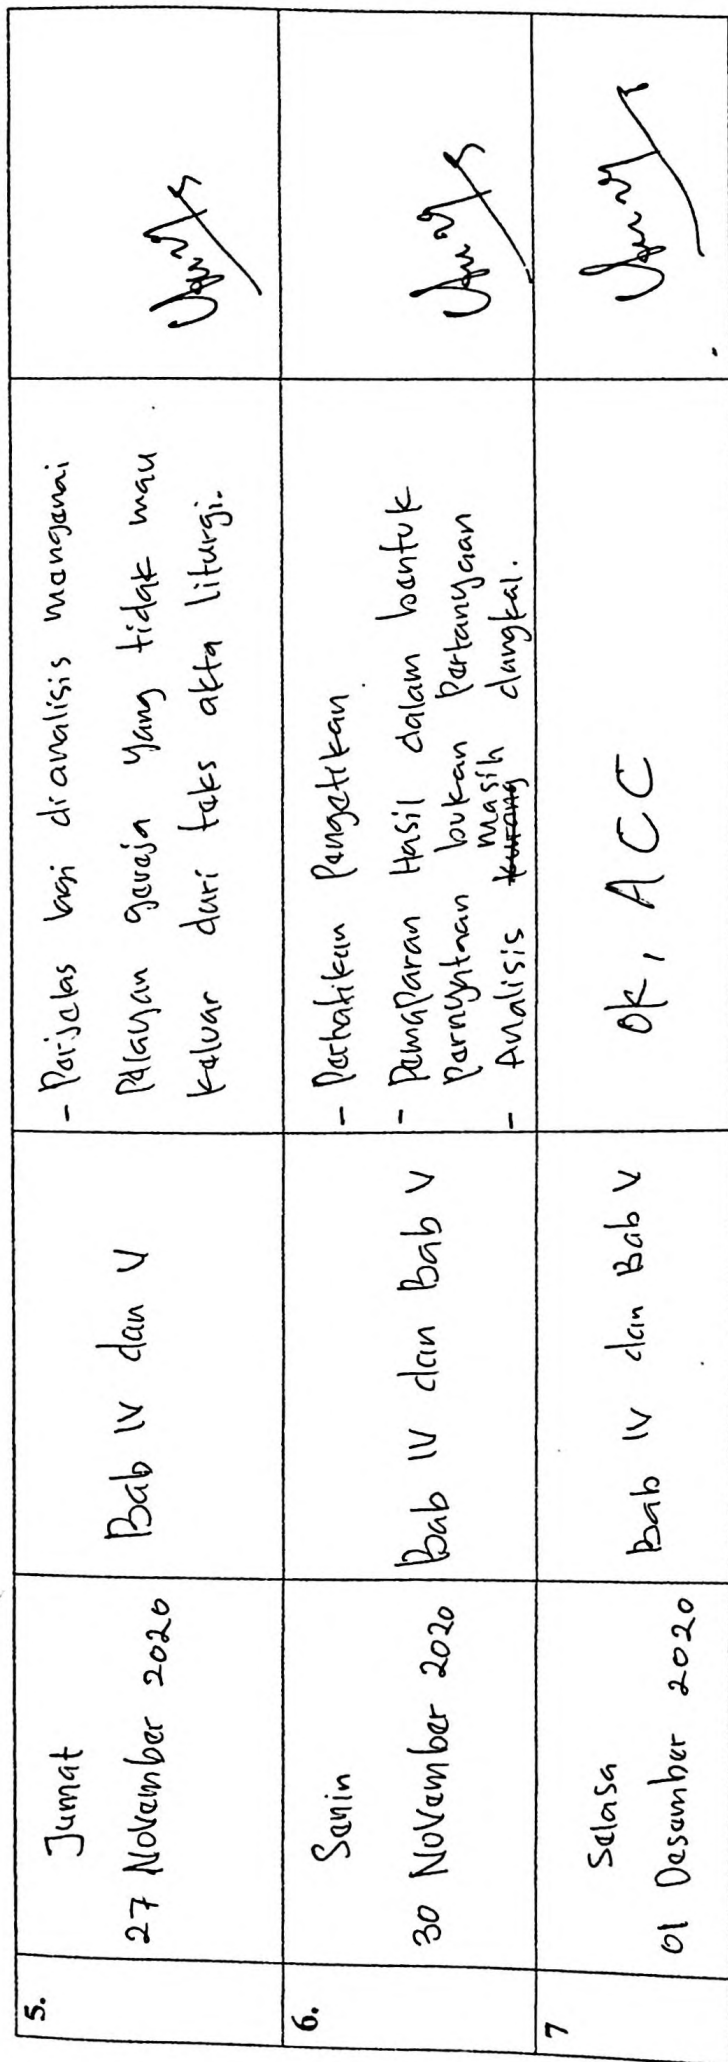 5.
Jumat
27 November 2020
Bab IV dan V
- Perjelas lagi dianalisis mengenai
Pelayan gereja yang tidak mau
keluar dari teks akta liturgi.
6.
Senin
30 November 2020
Bab IV dan Bab V
- Perhatikan Pengetikan
- Pemaparan Hasil dalam bentuk
Pernyataan bukan Pertanyaan
- Analisis kurang masih dangkal.
7
Selasa
01 Desember 2020
Bab IV dan Bab V
Ok, ACC